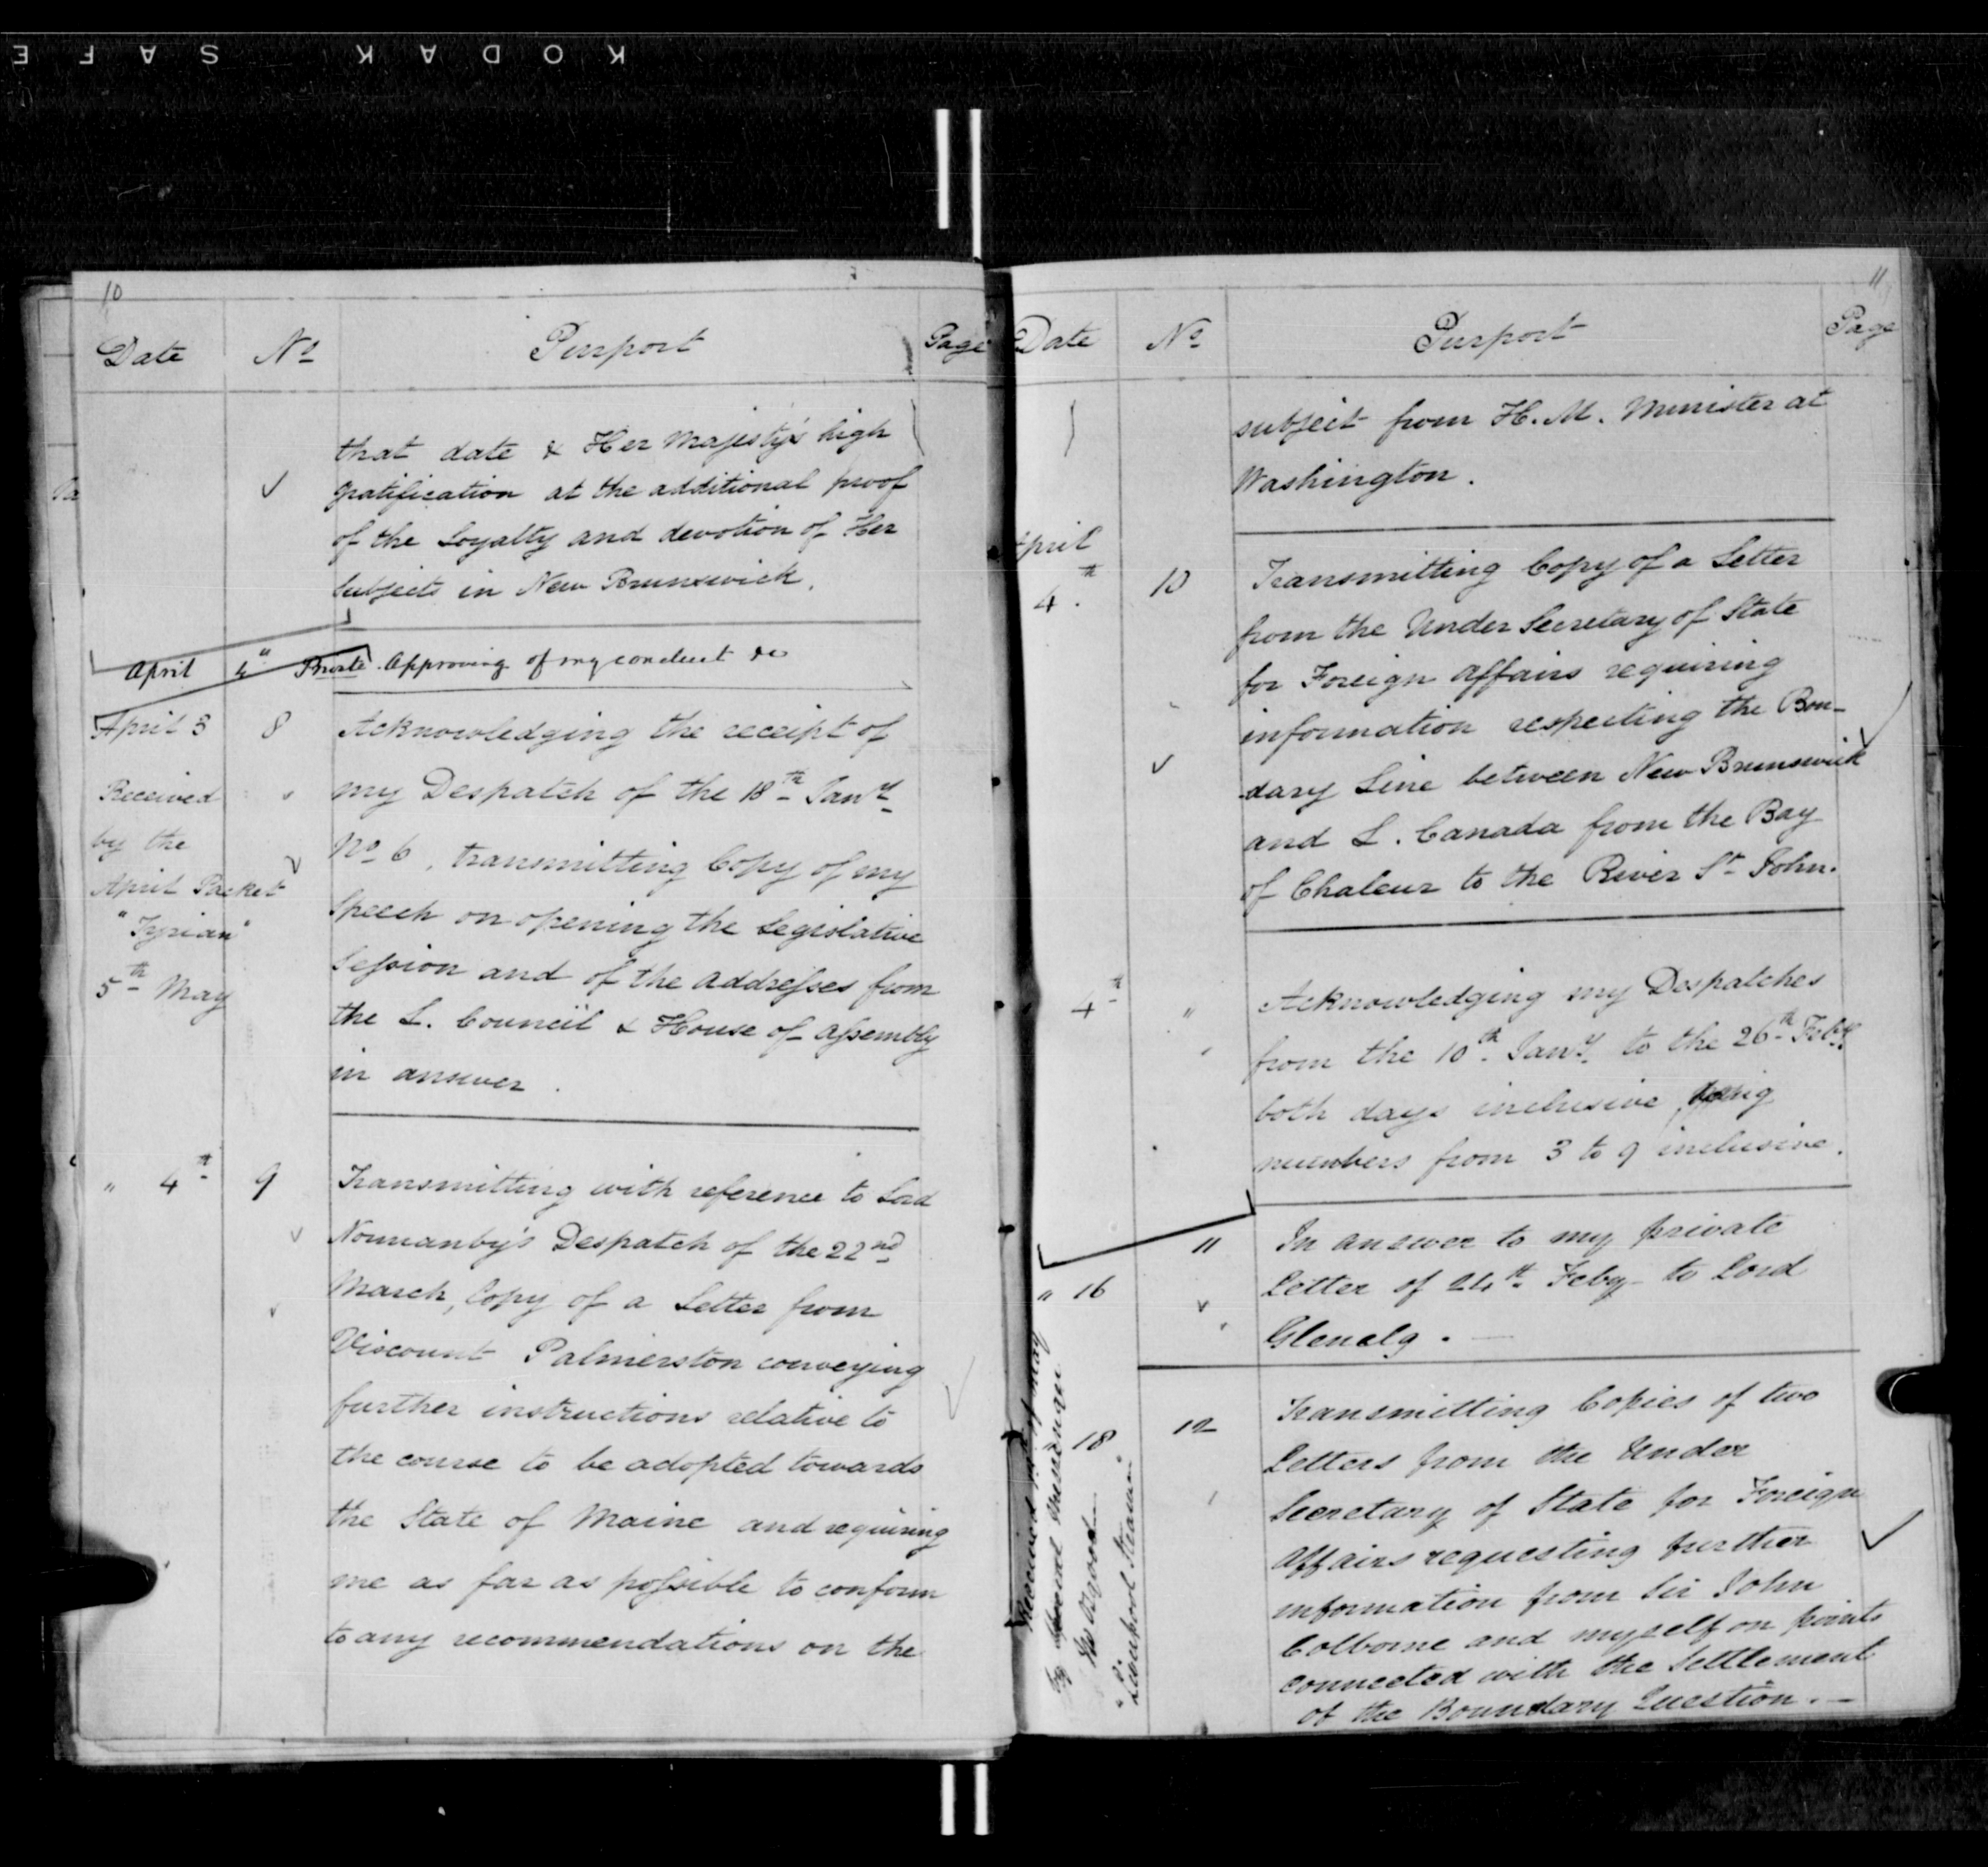 KODAK SAFE
10
Date No Purport Page
that date & Her Majesty's high
gratification at the additional proof
of the Loyalty and devotion of Her
Subjects in New Brunswick.
April 4th Private. Approving of my conduct &c
April 3 8 Acknowledging the receipt of
my Despatch of the 18th Jany
No 6, transmitting Copy of my
Speech on opening the Legislative
Session and of the Addresses from
the L. Council & House of Assembly
in answer.
Received
by the
April Packet
"Tyrian"
5th May
" 4th 9 Transmitting with reference to Lord
Normanby's Despatch of the 22nd
March, Copy of a Letter from
Viscount Palmerston conveying
further instructions relative to
the course to be adopted towards
the State of Maine and requiring
me as far as possible to conform
to any recommendations on the
11
Date No Purport Page
subject from H. M. Minister at
Washington.
April
4th 10 Transmitting Copy of a Letter
from the Under Secretary of State
for Foreign Affairs requiring
information respecting the Boun-
dary Line between New Brunswick
and L. Canada from the Bay
of Chaleur to the River St John.
4th " Acknowledging my Despatches
from the 10th Jany to the 26th Feby
both days inclusive
numbers from 3 to 9 inclusive.
" 16 11 In answer to my private
Letter of 24th Feby to Lord
Glenelg. —
18 12 Transmitting Copies of two
Letters from the Under
Secretary of State for Foreign
Affairs requesting further
information from Sir John
Colborne and myself on points
connected with the Settlement
of the Boundary Question. —
Received May
By Messenger
"Liverpool Steamer"